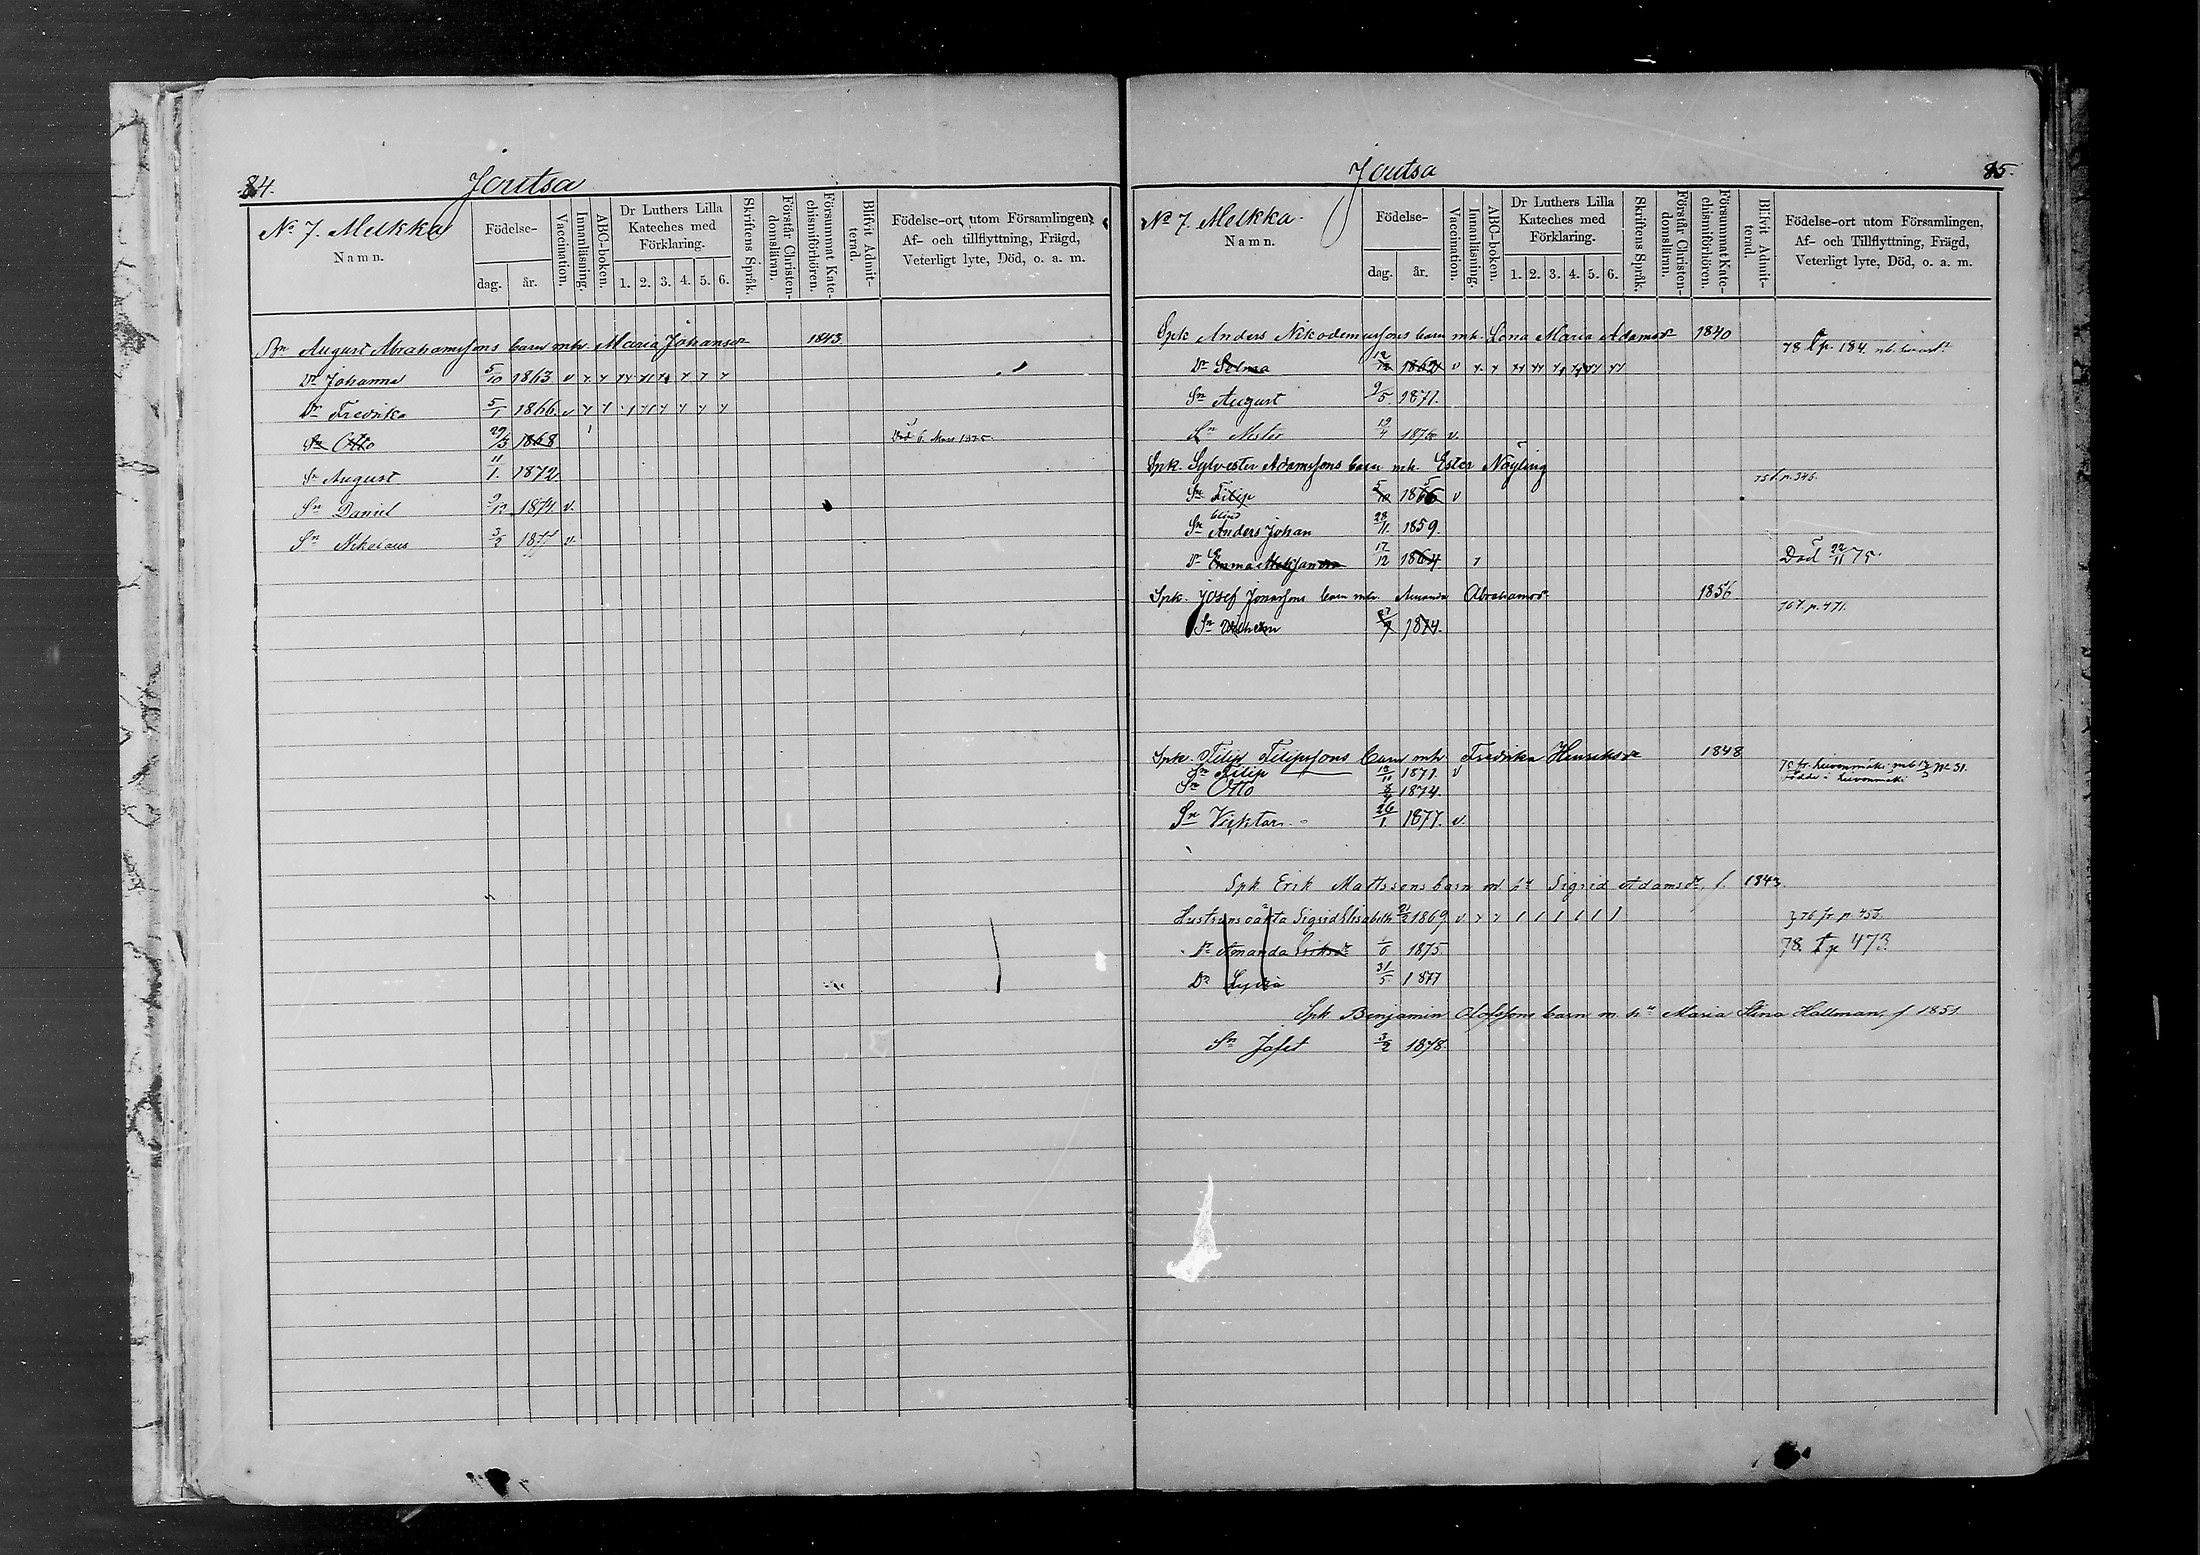 84. Joutsa
No 7. Mulkka
Namn.
Födelse-
dag.
år.
Vaccination.
Innanläsning.
ABC-boken.
Dr Luthers Lilla
Kateches med
Förklaring.
1. 2. 3. 4. 5. 6.
Skriftens Språk.
Förstår Christen-
domsläran.
Försummat Kate-
chismiförhören.
Blifvit Admit-
terad.
Födelse-ort utom Församlingen,
Af- och tillflyttning, Frägd,
Veterligt lyte, Död, o. a. m.
August Abrahamssons barn mh. Maria Johansdr 1843
Dr Johanna 5/10 1863 v
Dr Fredrika 5/1 1866 v
Sn Otto 29/3 1868 Död 6. Mars 1875.
Sn August 11/1. 1872
Sn Daniel 9/12 1874 v.
Sn Nikolaus 3/2 1877 v.
Joutsa 85.
No 7. Mulkka
Namn.
Födelse-
dag.
år.
Vaccination.
Innanläsning.
ABC-boken.
Dr Luthers Lilla
Kateches med
Förklaring.
1. 2. 3. 4. 5. 6.
Skriftens Språk.
Förstår Christen-
domsläran.
Försummat Kate-
chismiförhören.
Blifvit Admit-
terad.
Födelse-ort utom Församlingen,
Af- och Tillflyttning, Frägd,
Veterligt lyte, Död, o. a. m.
Spk Anders Nikodemussons barn mh. Lena Maria Adamsdr 1840
78 t.p. 184.
Dr Selma 12/12 1862 v
Sn August 9/5 1871.
Sn Nestor 19/4 1876 v.
Spk. Sylvester Adamssons barn mh. Ester Nöyling
75 t. p. 346.
Sn Filip 5/10 1865 v
blind
Sn Anders Johan 28/11 1859.
Dr Emma 17/12 1864 Död 22/11 75.
Spk. Josef Jonassons barn mh. Amanda Abrahamsdr 1856
76 t. p. 471.
Sn Vilhelm 1874.
Spk. Filip Filipssons barn mh Fredrika Henriksdr 1848
75 fr. Leivonmäki mb No 51.
Sn Filip 12/11 1871. v
födde i Leivonmäki
Sn Otto 1874.
Sn Viktor 26/1 1877. v.
Spk Erik Mattssons barn m hu Sigrid Adamsdr, f. 1843.
Hustruns oäkta Sigrid Elisabeth 1869 v. 76 fr p. 455.
Dr Amanda Eriksdr 1/6 1875. 78. t p 473
Dr Lydia 31/5 1877
Spk Benjamin Olofssons barn m hu Maria Stina Hallman, f 1851.
Sn Jafet 3/2 1878.